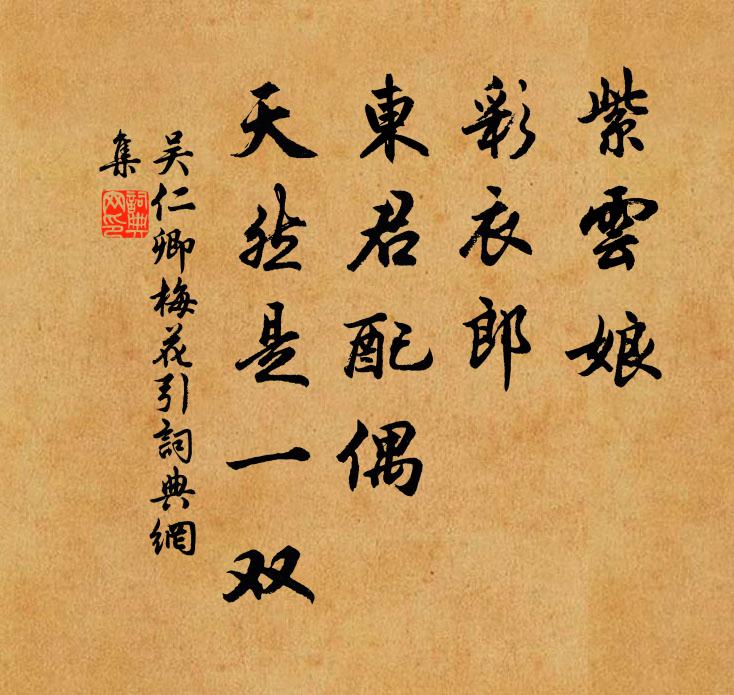 紫雲娘
彩衣郎
東君配偶
天然是一双
吴仁卿梅花引詞典網
集
詞典
网印